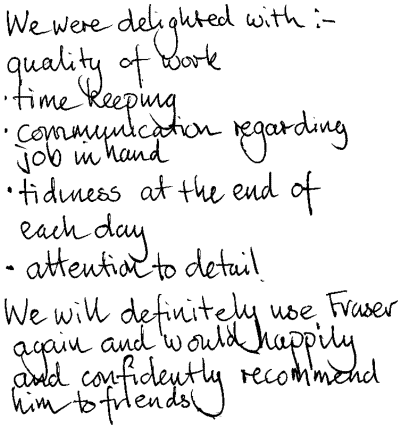 We were delighted with :-
quality of work
· time keeping
· communication regarding
job in hand
· tidiness at the end of
each day
· attention to detail.
We will definitely use Fraser
again and would happily
and confidently recommend
him to friends